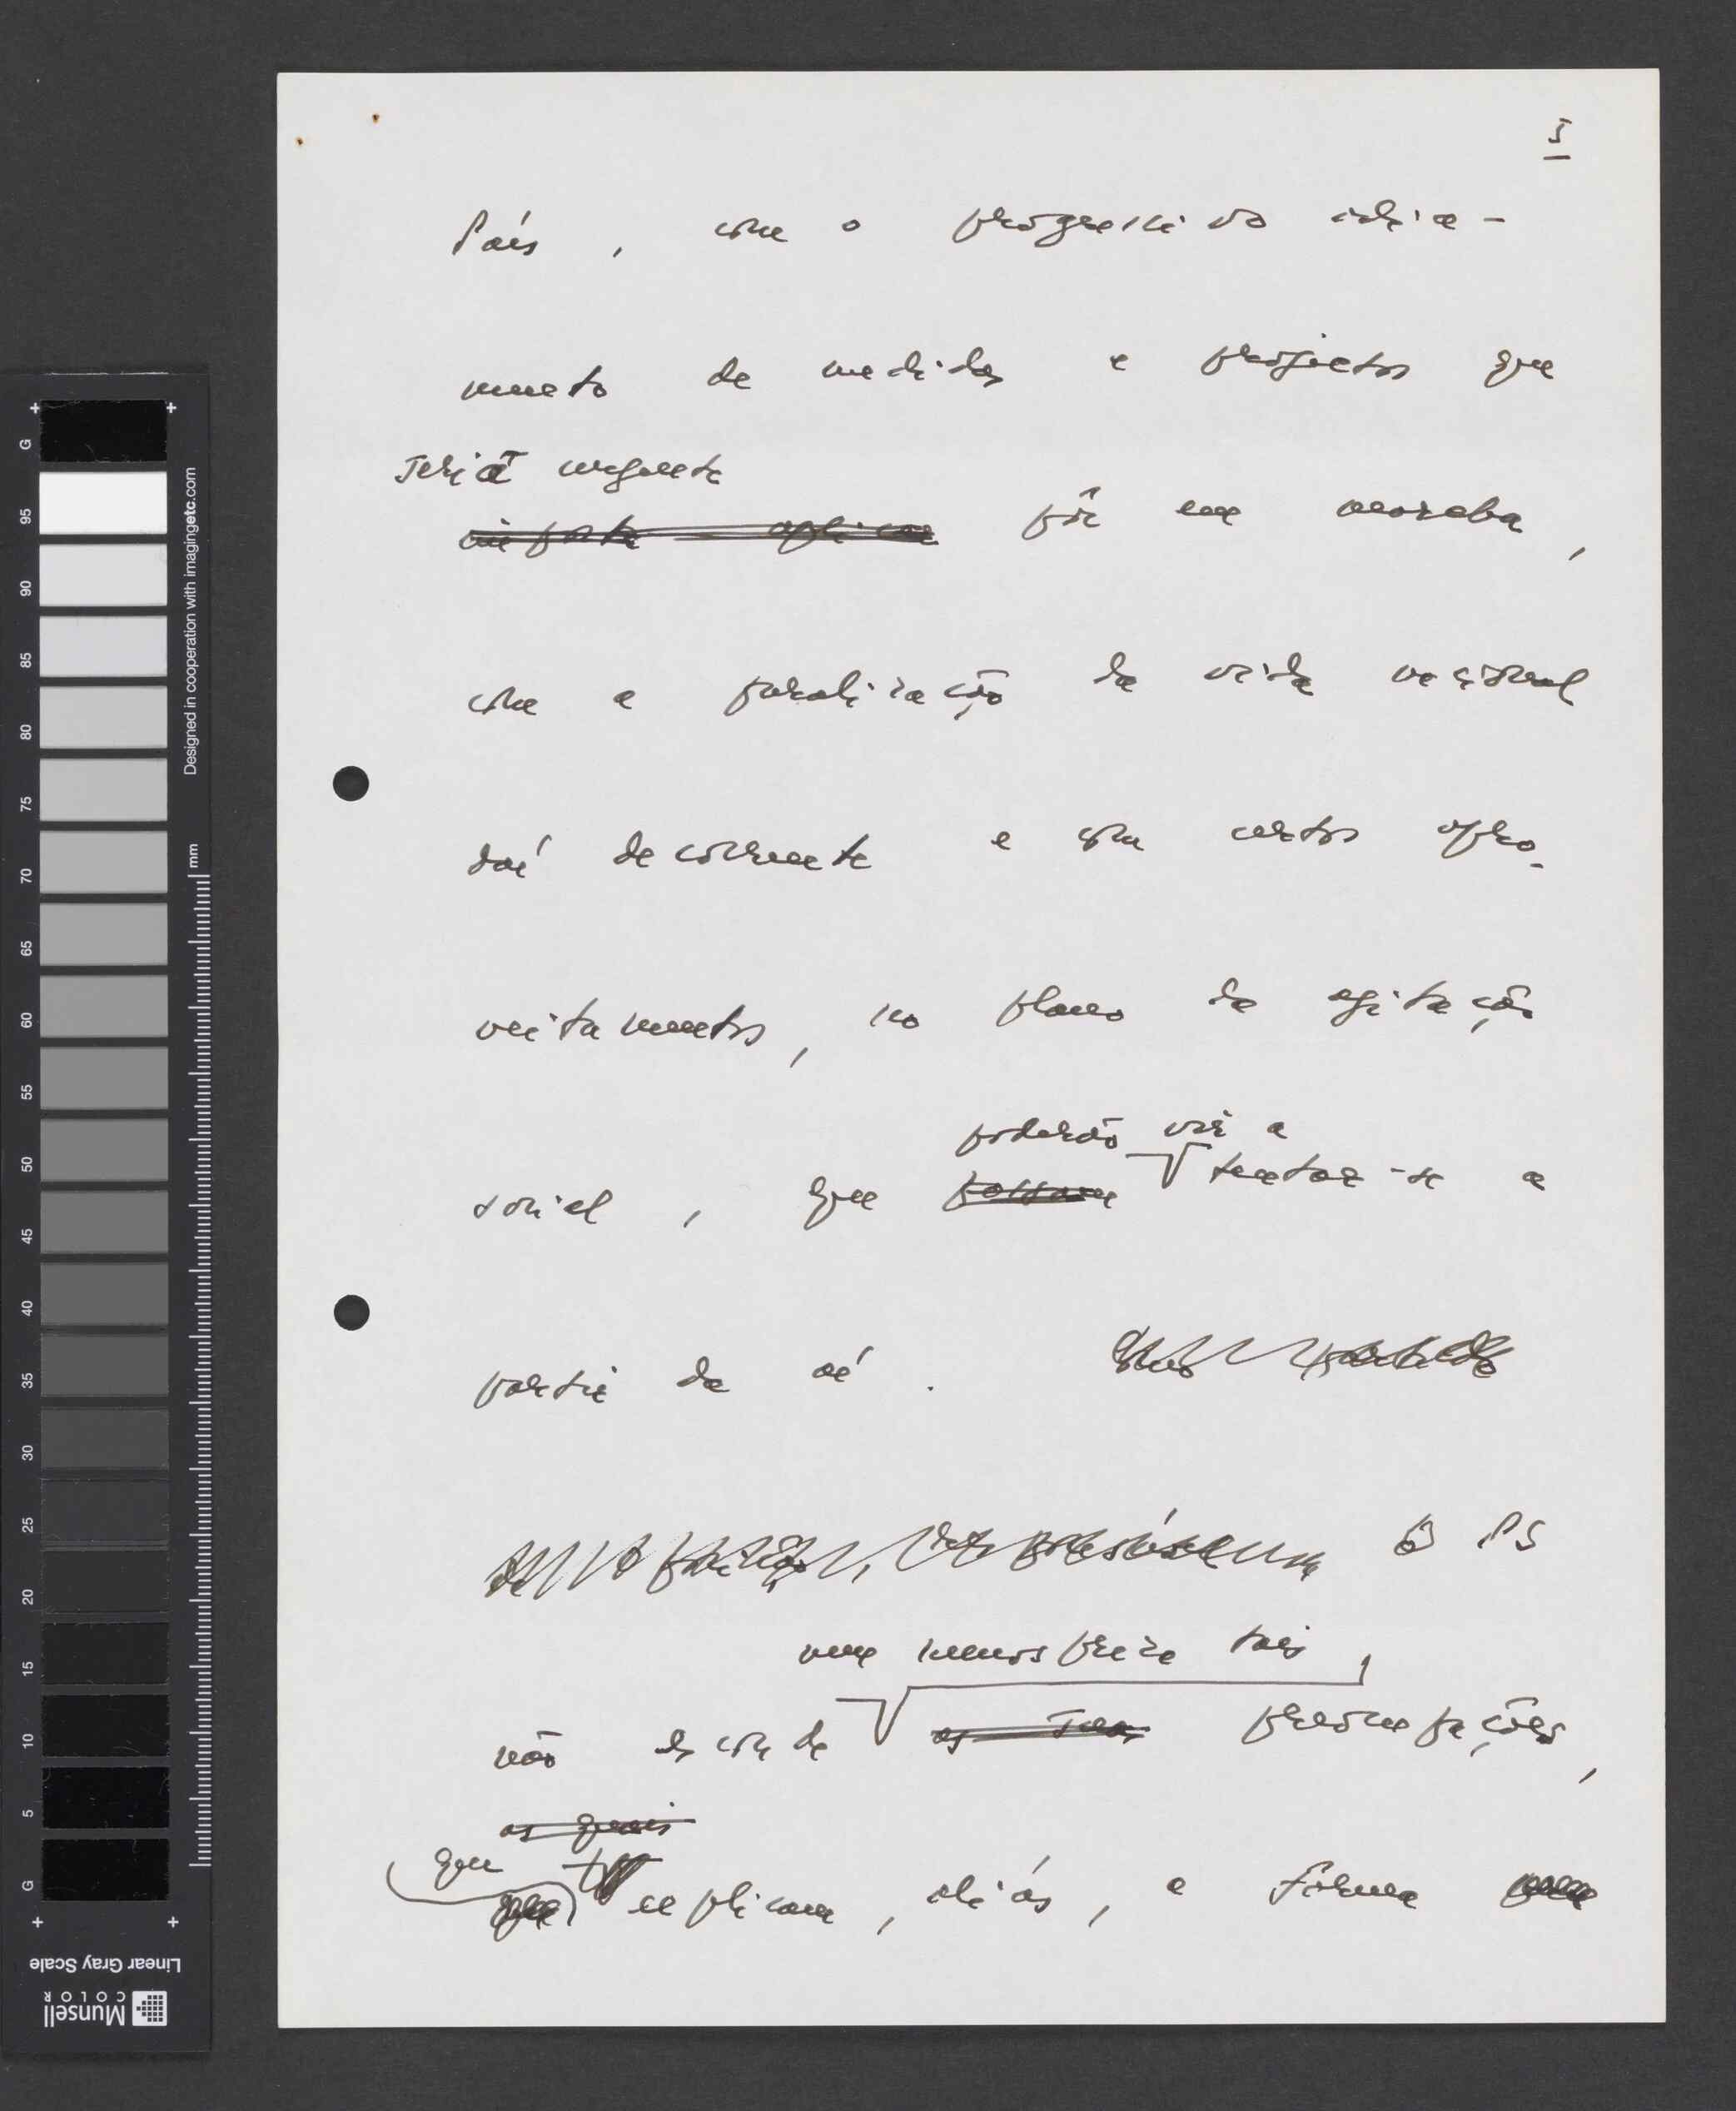 5
País, com o progressivo adia-
mento de medidas e projectos que
seria urgente
importa aplicar pôr em marcha,
com a paralização da vida nacional
daí decorrente e com certos apro-
veitamentos, no plano da agitação
poderão vir a
social, que possam tentar-se a
partir daí.
O PS
nem menospreza tais
não esconde as suas preocupações,
as quais
que
que explicam, aliás, a forma
Designed in cooperation with imagingetc.com
mm
G 95 90 85 80 75 70 65 60 55 50 45 40 35 30 25 20 15 10 5 G
Linear Gray Scale
Munsell
COLOR